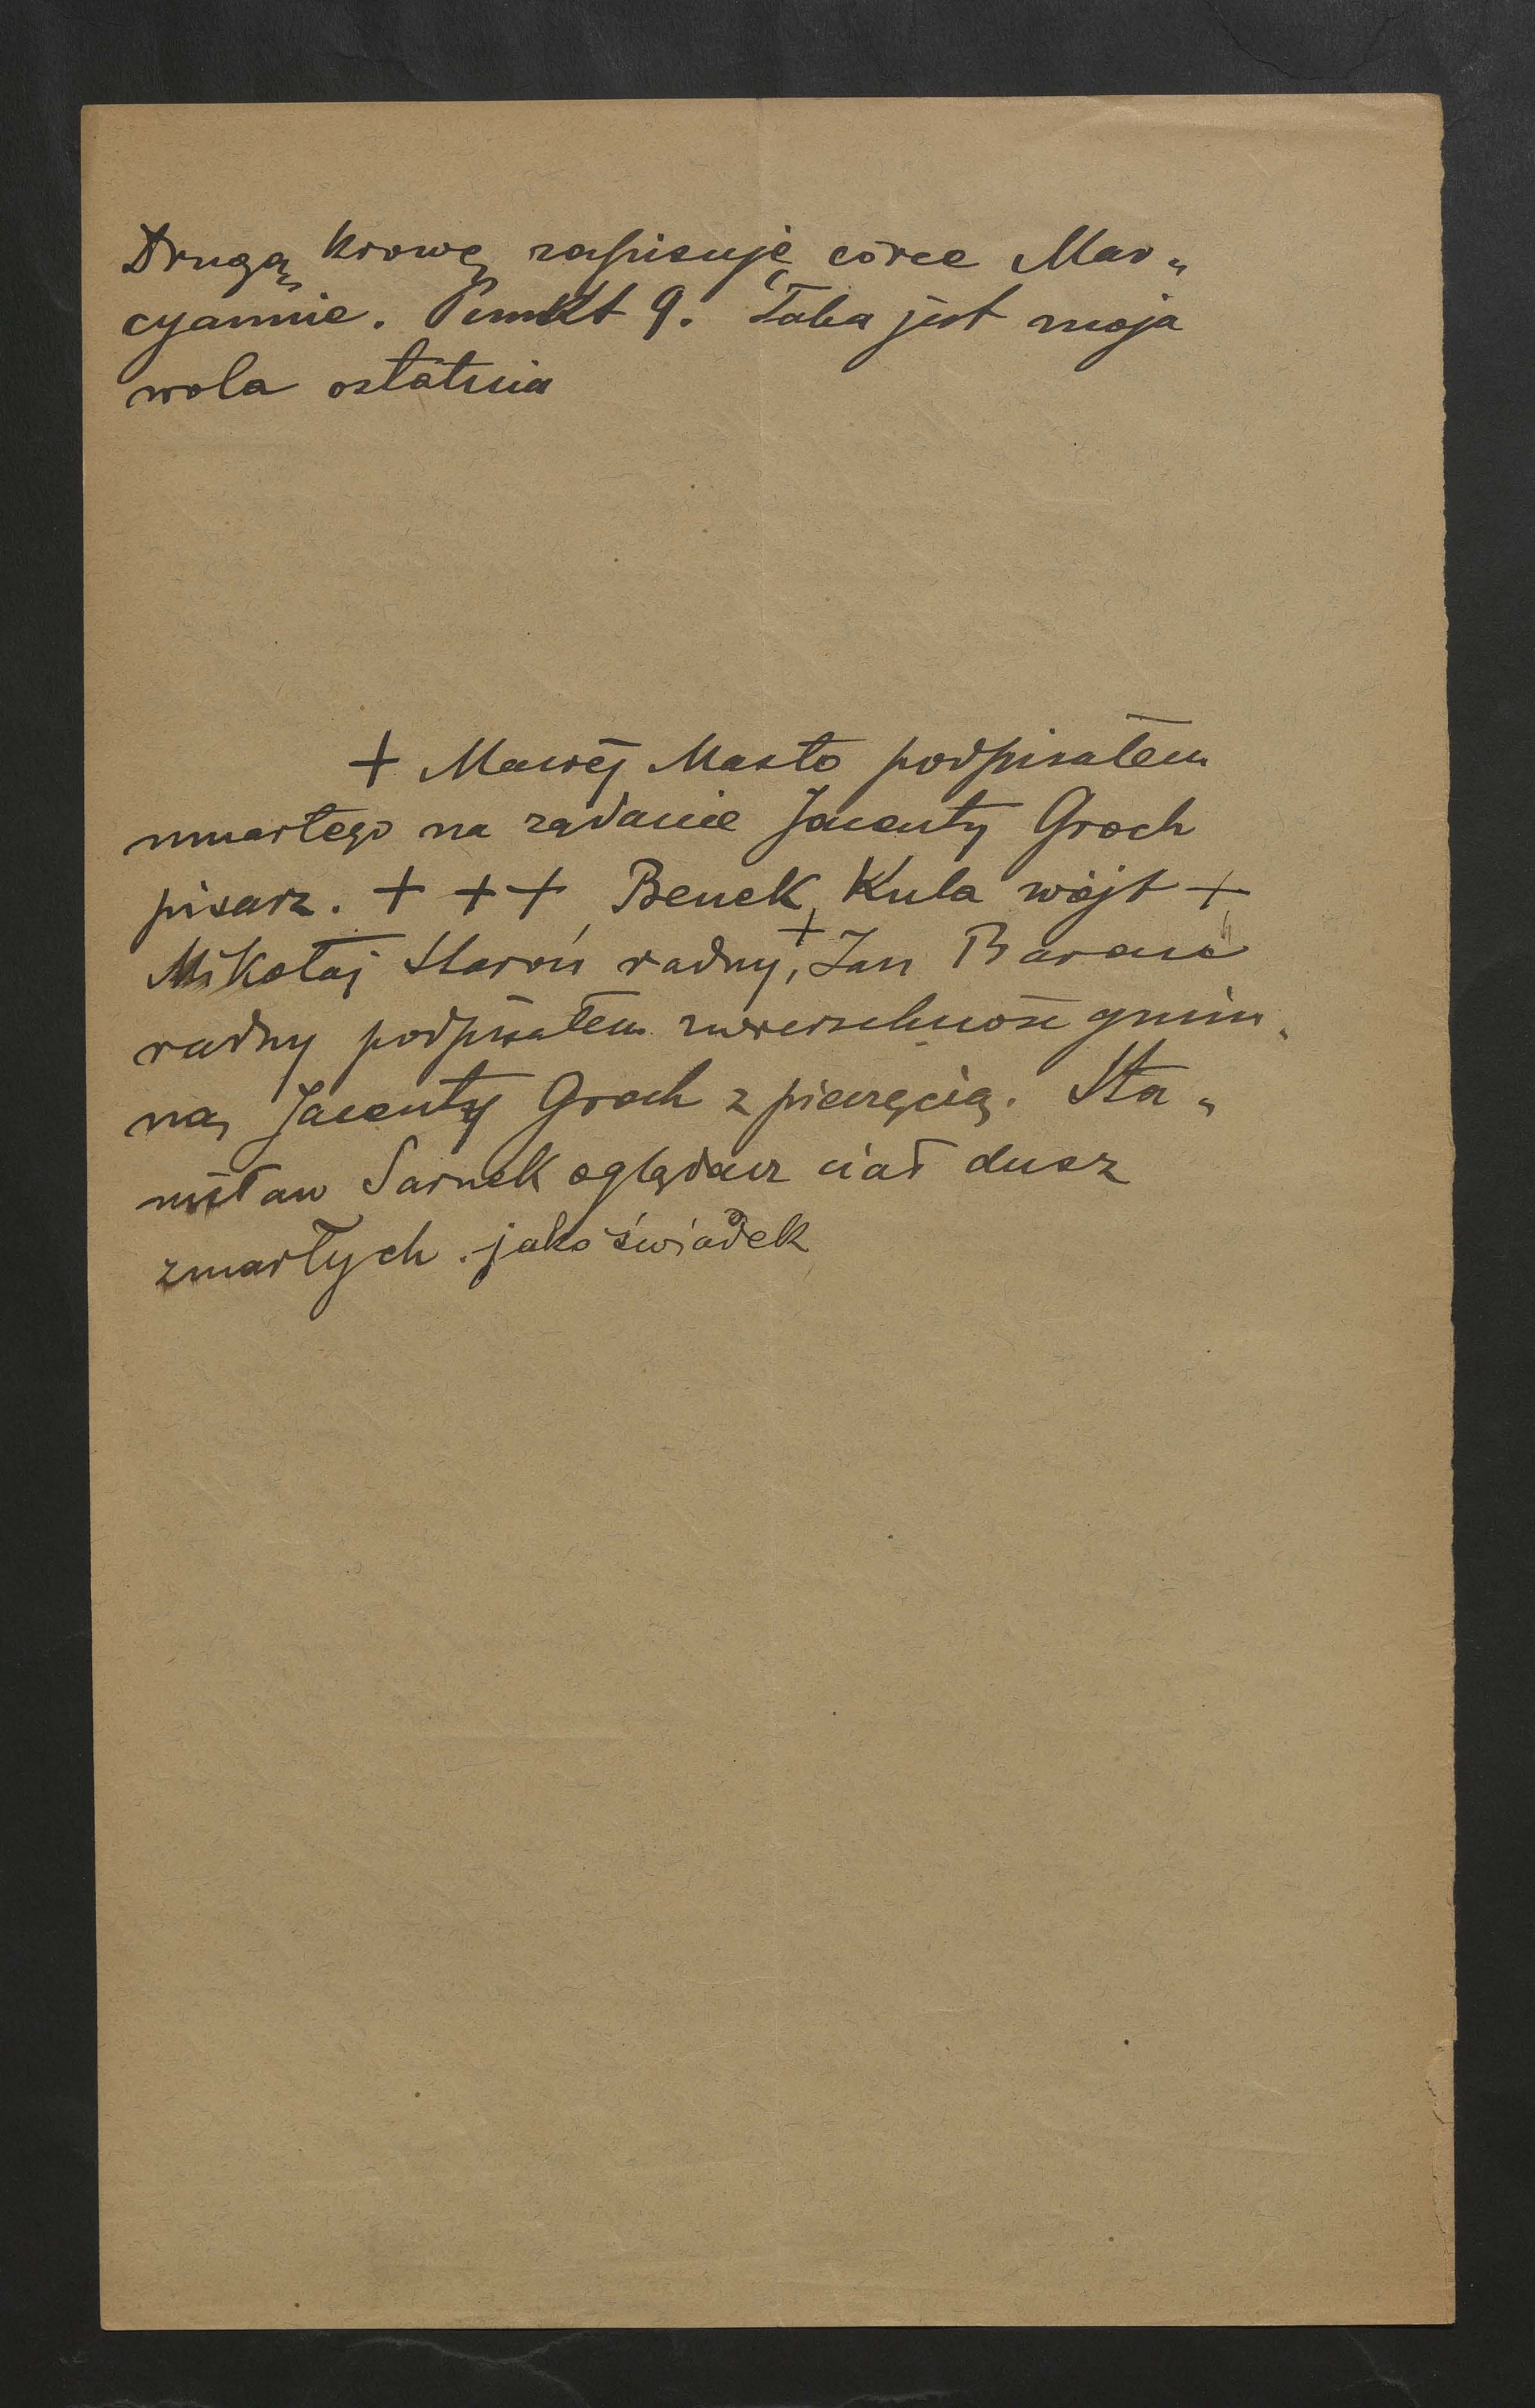 Drugą krowę zapisuję córce Mar„
cyannie. Punkt 9. Taka jest moja
wola ostatnia
+ Maciej Masło podpisałem
umarłego na rządanie Jacenty Groch
pisarz. + + + Benek, Kula wójt +
Mikołaj Staroń radny, + Jan Baran
radny podpisałem zwierzchność gmin„
na, Jacenty Groch z pieczęcią. Sta„
nisław Sarnek oglądacz ciał dusz
zmarłych. jako świadek